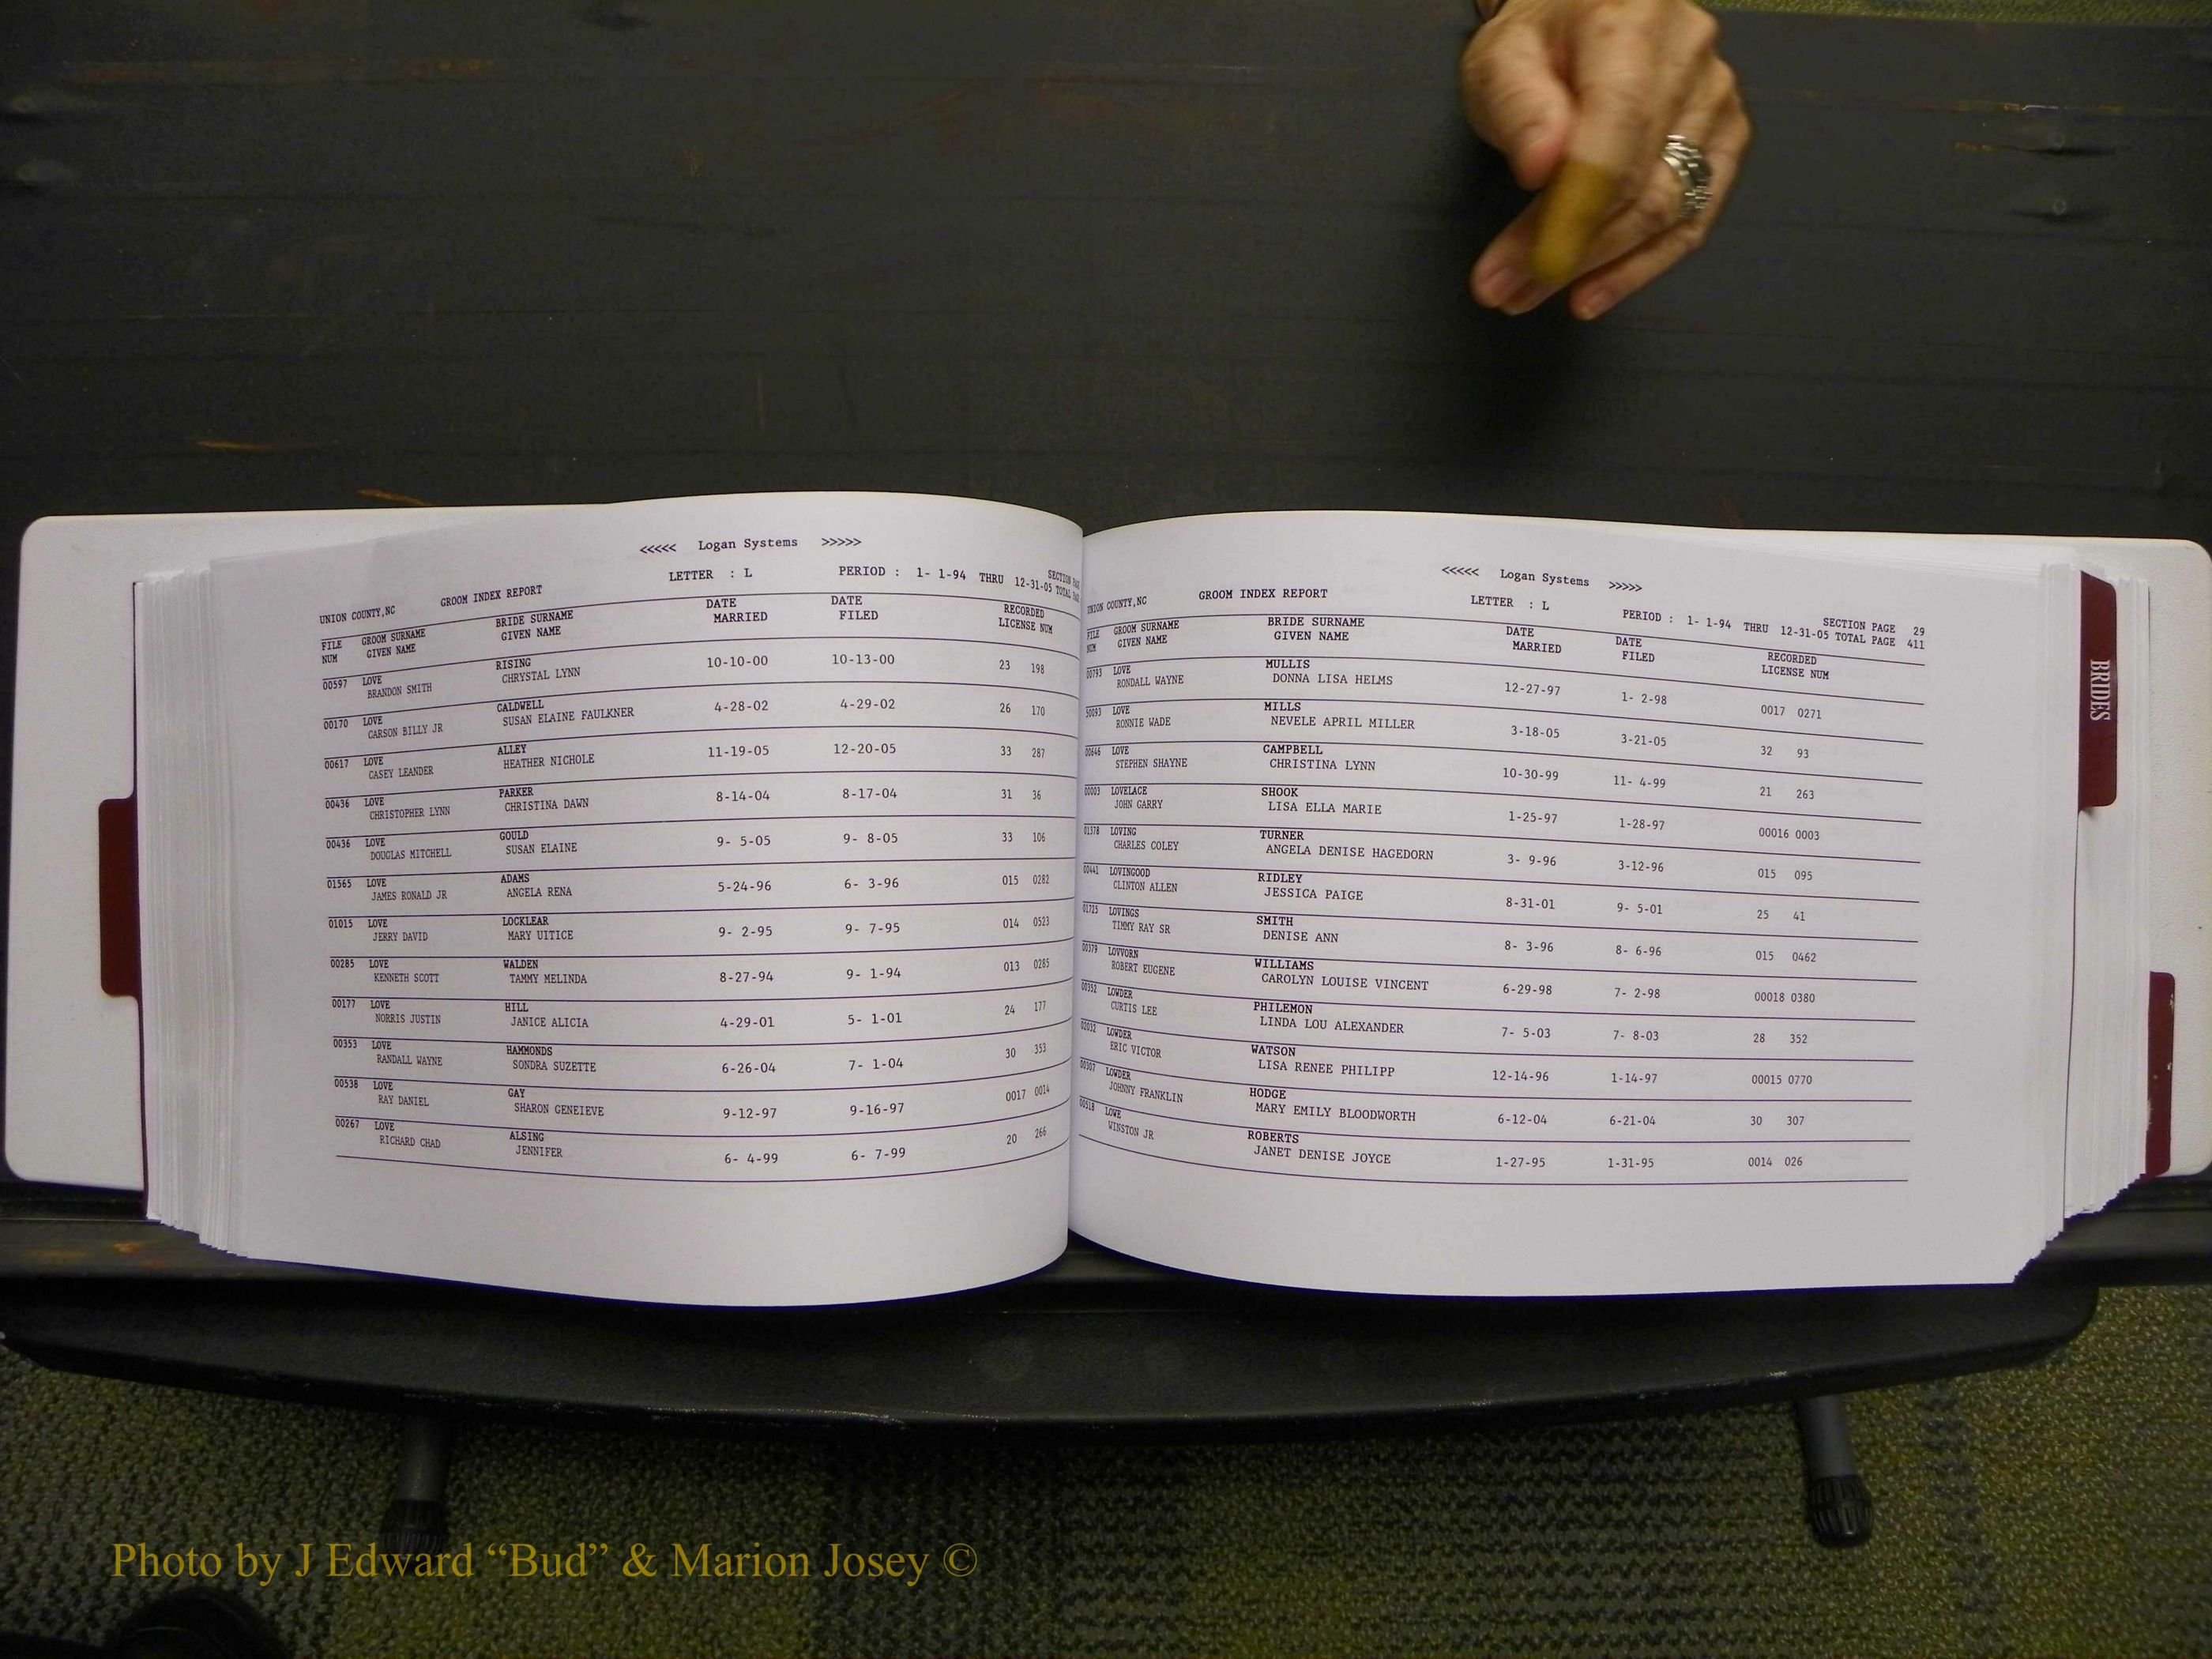 <<<<< Logan Systems >>>>>
UNION COUNTY,NC GROOM INDEX REPORT LETTER : L PERIOD : 1- 1-94 THRU 12-31-05 TOTAL
SECTION
FILE GROOM SURNAME BRIDE SURNAME DATE DATE RECORDED
NUM GIVEN NAME GIVEN NAME MARRIED FILED LICENSE NUM
00597 LOVE RISING 10-10-00 10-13-00 23 198
BRANDON SMITH CHRYSTAL LYNN
00170 LOVE CALDWELL 4-28-02 4-29-02 26 170
CARSON BILLY JR SUSAN ELAINE FAULKNER
00617 LOVE ALLEY 11-19-05 12-20-05 33 287
CASEY LEANDER HEATHER NICHOLE
00436 LOVE PARKER 8-14-04 8-17-04 31 36
CHRISTOPHER LYNN CHRISTINA DAWN
00436 LOVE GOULD 9- 5-05 9- 8-05 33 106
DOUGLAS MITCHELL SUSAN ELAINE
01565 LOVE ADAMS 5-24-96 6- 3-96 015 0282
JAMES RONALD JR ANGELA RENA
01015 LOVE LOCKLEAR 9- 2-95 9- 7-95 014 0523
JERRY DAVID MARY UITICE
00285 LOVE WALDEN 8-27-94 9- 1-94 013 0285
KENNETH SCOTT TAMMY MELINDA
00177 LOVE HILL 4-29-01 5- 1-01 24 177
NORRIS JUSTIN JANICE ALICIA
00353 LOVE HAMMONDS 6-26-04 7- 1-04 30 353
RANDALL WAYNE SONDRA SUZETTE
00538 LOVE GAY 9-12-97 9-16-97 0017 0014
RAY DANIEL SHARON GENEIEVE
00267 LOVE ALSING 6- 4-99 6- 7-99 20 266
RICHARD CHAD JENNIFER
<<<<< Logan Systems >>>>>
UNION COUNTY,NC GROOM INDEX REPORT LETTER : L SECTION PAGE 29
PERIOD : 1- 1-94 THRU 12-31-05 TOTAL PAGE 411
FILE GROOM SURNAME BRIDE SURNAME DATE DATE RECORDED
NUM GIVEN NAME GIVEN NAME MARRIED FILED LICENSE NUM
00793 LOVE MULLIS 12-27-97 1- 2-98 0017 0271
RONDALL WAYNE DONNA LISA HELMS
50093 LOVE MILLS 3-18-05 3-21-05 32 93
RONNIE WADE NEVELE APRIL MILLER
00646 LOVE CAMPBELL 10-30-99 11- 4-99 21 263
STEPHEN SHAYNE CHRISTINA LYNN
00003 LOVELACE SHOOK 1-25-97 1-28-97 00016 0003
JOHN GARRY LISA ELLA MARIE
01378 LOVING TURNER 3- 9-96 3-12-96 015 095
CHARLES COLEY ANGELA DENISE HAGEDORN
00441 LOVINGOOD RIDLEY 8-31-01 9- 5-01 25 41
CLINTON ALLEN JESSICA PAIGE
01725 LOVINGS SMITH 8- 3-96 8- 6-96 015 0462
TIMMY RAY SR DENISE ANN
00379 LOVVORN WILLIAMS 6-29-98 7- 2-98 00018 0380
ROBERT EUGENE CAROLYN LOUISE VINCENT
00352 LOWDER PHILEMON 7- 5-03 7- 8-03 28 352
CURTIS LEE LINDA LOU ALEXANDER
02032 LOWDER WATSON 12-14-96 1-14-97 00015 0770
ERIC VICTOR LISA RENEE PHILIPP
00307 LOWDER HODGE 6-12-04 6-21-04 30 307
JOHNNY FRANKLIN MARY EMILY BLOODWORTH
00518 LOWE ROBERTS 1-27-95 1-31-95 0014 026
WINSTON JR JANET DENISE JOYCE
BRIDES
Photo by J Edward “Bud” & Marion Josey ©